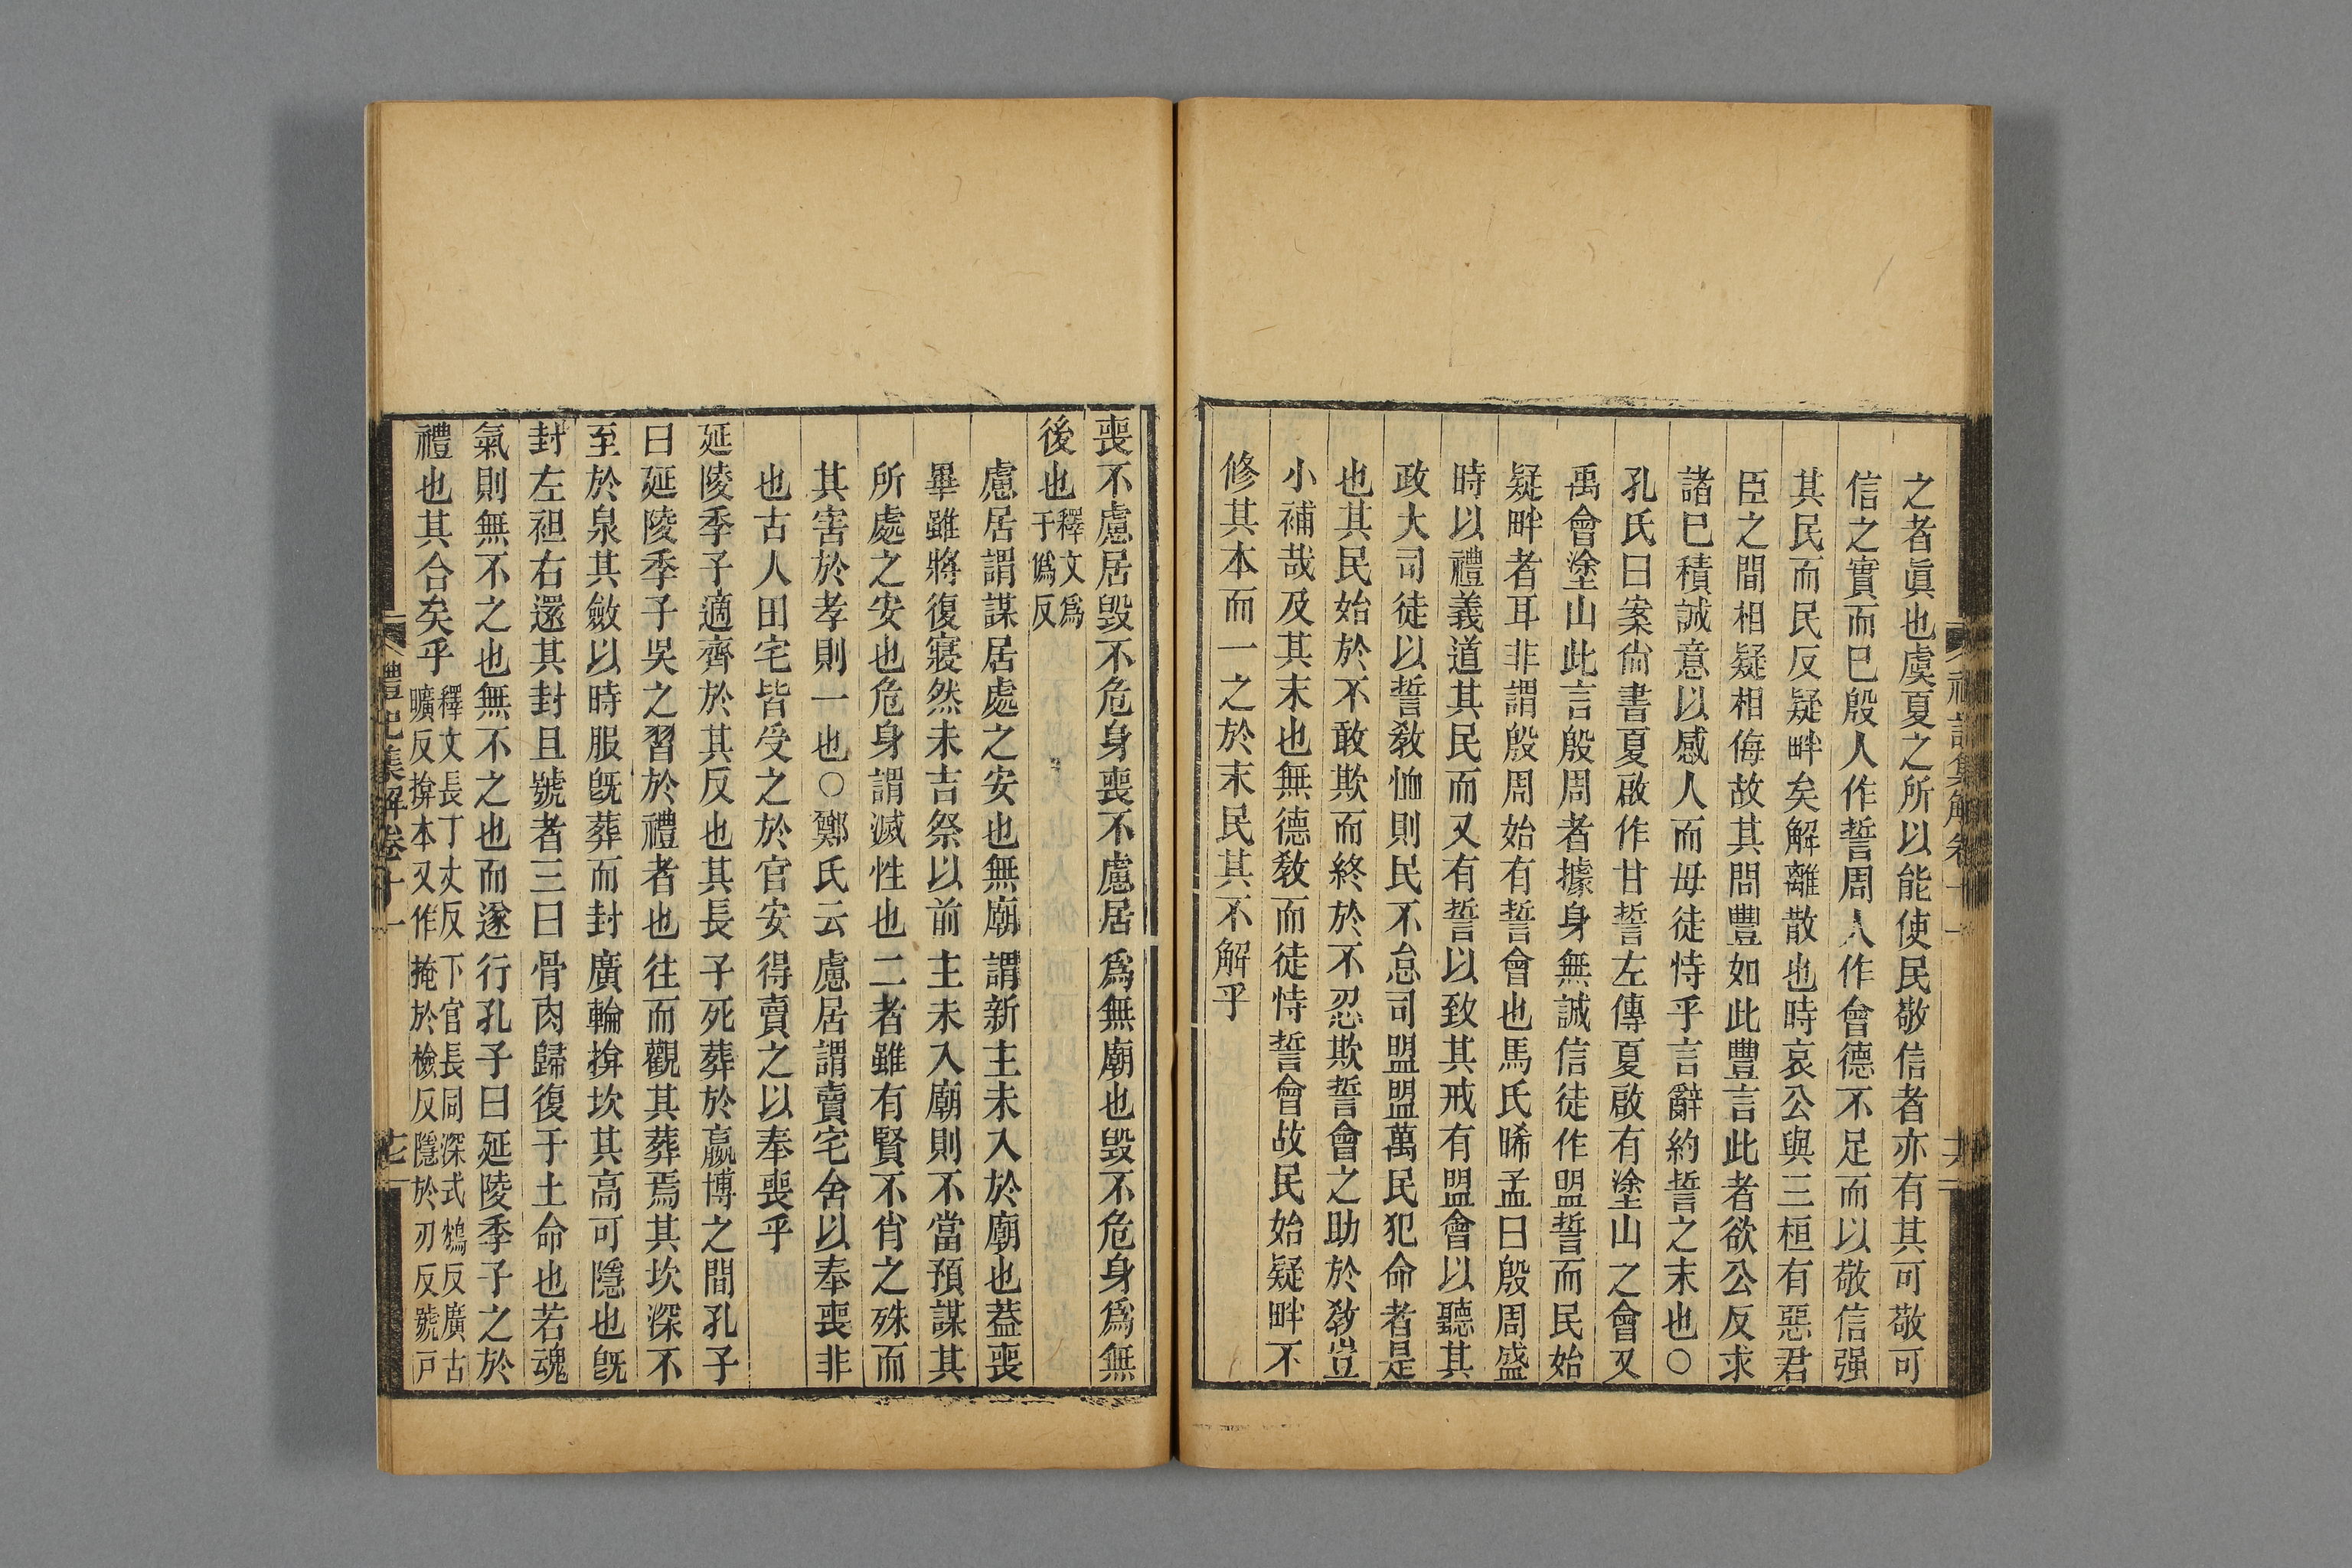 之者眞也虞夏之所以能使民敬信者亦有其可敬可
信之實而已殷人作誓周人作會德不足而以敬信强
其民而民反疑畔矣解離散也時哀公與三桓有惡君
臣之間相疑相侮故其問豐如此豐言此者欲公反求
諸巳積誠意以感人而毋徒恃乎言辭約誓之末也○
孔氏曰案尙書夏啟作甘誓左傳夏啟有塗山之會又
禹會塗山此言殷周者據身無誠信徒作盟誓而民始
疑畔者耳非謂殷周始有誓會也馬氏晞孟曰殷周盛
時以禮義道其民而又有誓以致其戒有盟會以聽其
政大司徒以誓敎恤則民不怠司盟盟萬民犯命者是
也其民始於不敢欺而終於不忍欺誓會之助於敎豈
小補哉及其末也無德敎而徒恃誓會故民始疑畔不
修其本而一之於末民其不解乎
喪不慮居毀不危身喪不慮居爲無廟也毀不危身爲無
後也釋文爲于僞反
慮居謂謀居處之安也無廟謂新主未入於廟也蓋喪
畢雖將復寢然未吉祭以前主未入廟則不當預謀其
所處之安也危身謂滅性也二者雖有賢不肖之殊而
其害於孝則一也○鄭氏云慮居謂賣宅舍以奉喪非
也古人田宅皆受之於官安得賣之以奉喪乎
延陵季子適齊於其反也其長子死葬於嬴博之間孔子
曰延陵季子吳之習於禮者也往而觀其葬焉其坎深不
至於泉其斂以時服旣葬而封廣輪揜坎其高可隱也旣
封左袒右還其封且號者三曰骨肉歸復于土命也若魂
氣則無不之也無不之也而遂行孔子曰延陵季子之於
禮也其合矣乎釋文長丁丈反下官長同深式鴆反廣古曠反揜本又作掩於檢反隱於刃反號戸
禮記集解卷十一